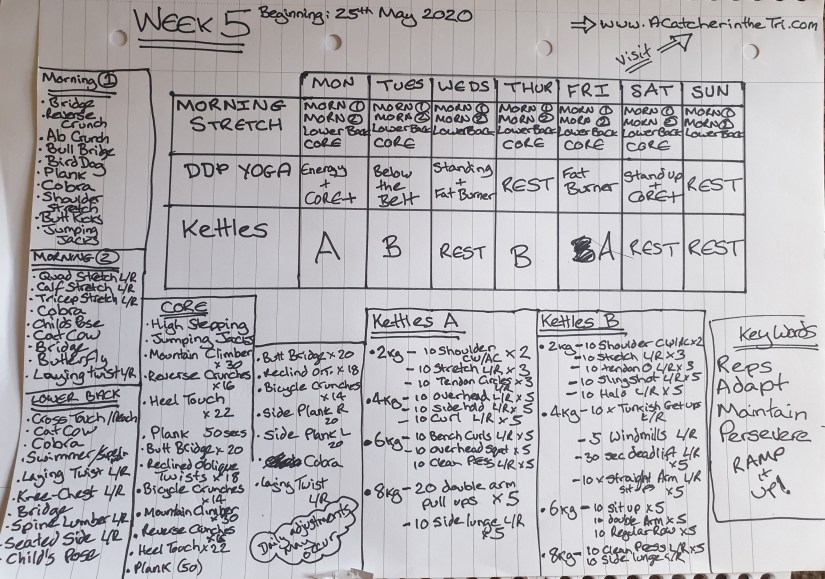 WEEK 5 Beginning: 25th May 2020
⇒ www.ACatcherintheTri.com
visit
MON TUES WEDS THUR FRI SAT SUN
MORNING STRETCH
MORN ① MORN ① MORN ① MORN ① MORN ① MORN ① MORN ①
MORN ② MORN ② MORN ② MORN ② MORN ② MORN ② MORN ②
Lower Back Lower Back Lower Back Lower Back Lower Back Lower Back Lower Back
CORE CORE CORE CORE CORE
DDP YOGA
Energy + CORE+
Below the Belt
Standing + Fat Burner
REST
Fat Burner
Stand up + CORE+
REST
Kettles
A B REST B A REST REST
Morning ①
• Bridge
• Reverse Crunch
• Ab Crunch
• Bull Bridge
• Bird Dog
• Plank
• Cobra
• Shoulder Stretch
• Butt Kicks
• Jumping Jacks
MORNING ②
• Quad Stretch L/R
• Calf Stretch L/R
• Tricep Stretch L/R
• Cobra
• Childs Pose
• Cat Cow
• Bridge
• Butterfly
• Laying Twist L/R
LOWER BACK
• Cross Touch/Reach
• Cat Cow
• Cobra
• Swimmer/
• Laying Twist L/R
• Knee-Chest L/R
• Bridge
• Spine Lumber L/R
• Seated Side L/R
• Child's Pose
CORE
• High Stepping
• Jumping Jacks
• Mountain Climber × 30
• Reverse Crunches × 16
• Heel Touch × 22
• Plank 50secs
• Butt Bridge × 20
• Reclined Oblique Twists × 18
• Bicycle Crunches × 14
• Mountain Climber × 30
• Reverse Crunches × 16
• Heel Touch × 22
• Plank (50)
• Butt Bridge × 20
• Reclind × 18
• Bicycle Crunches × 14
• Side Plank R 20
• Side Plank L 20
• Cobra
• Laying Twist L/R
Daily adjustments may occur
Kettles A
• 2kg - 10 Shoulder CW/AC × 2
- 10 Stretch L/R × 3
- 10 Tendon Circles × 3 L/R
• 4kg - 10 overhead L/R × 5
- 10 side hold L/R × 5
- 10 Curl L/R × 5
• 6kg - 10 Bench Curls L/R × 5
- 10 overhead Sqat × 5
- 10 Clean PESS L/R × 5
• 8kg - 20 double arm pull ups × 5
- 10 side lunge L/R × 5
Kettles B
• 2kg - 10 Shoulder CW/AC × 2
- 10 Stretch L/R × 3
- 10 Tendon O L/R × 3
- 10 Slingshot L/R × 5
- 10 Halo L/R × 5
• 4kg - 10 × Turkish Get ups L/R
- 5 Windmills L/R
- 30 sec deadlift L/R × 5
- 10 × Straight Arm L/R sit up × 5
• 6kg - 10 sit up × 5
10 double Arm × 5
10 Regular Row × 5
• 8kg - 10 Clean PESS L/R × 5
- 10 Side lunge L/R
Key Words
Reps
Adapt
Maintain
Persevere
RAMP
it
UP!